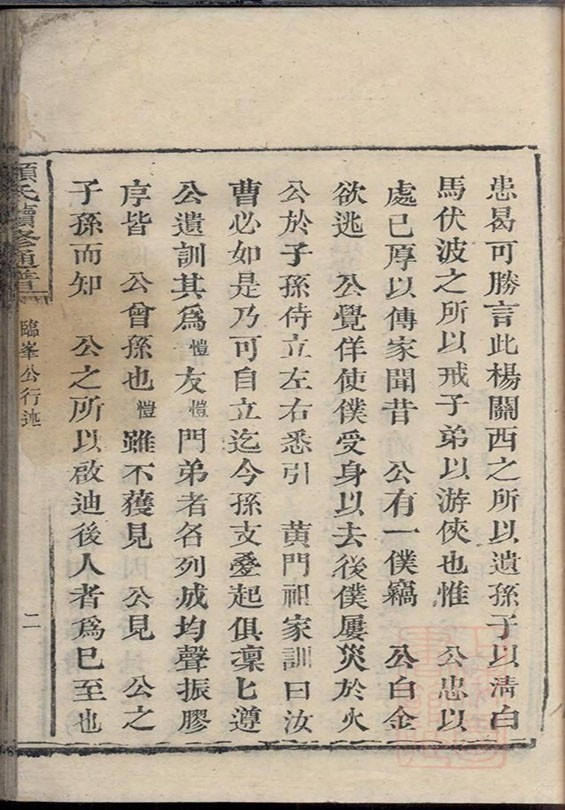 患曷可勝言此楊關西之所以遺孫子以清白
馬伏波之所以戒子弟以游俠也惟 公忠以
處已厚以傳家聞昔 公有一僕竊 公白金
欲逃 公覺佯使僕受身以去後僕屢災於火
公於子孫侍立左右悉引 黄門祖家訓曰汝
曹必如是乃可自立迄今孫支疊起俱凜匕遵
公遺訓其爲愷友愷門弟者各列成均聲振膠
序皆 公曾孫也愷雖不獲見 公見 公之
子孫而知 公之所以啟迪後人者爲已至也
顏氏續修通譜
臨峯公行述
二